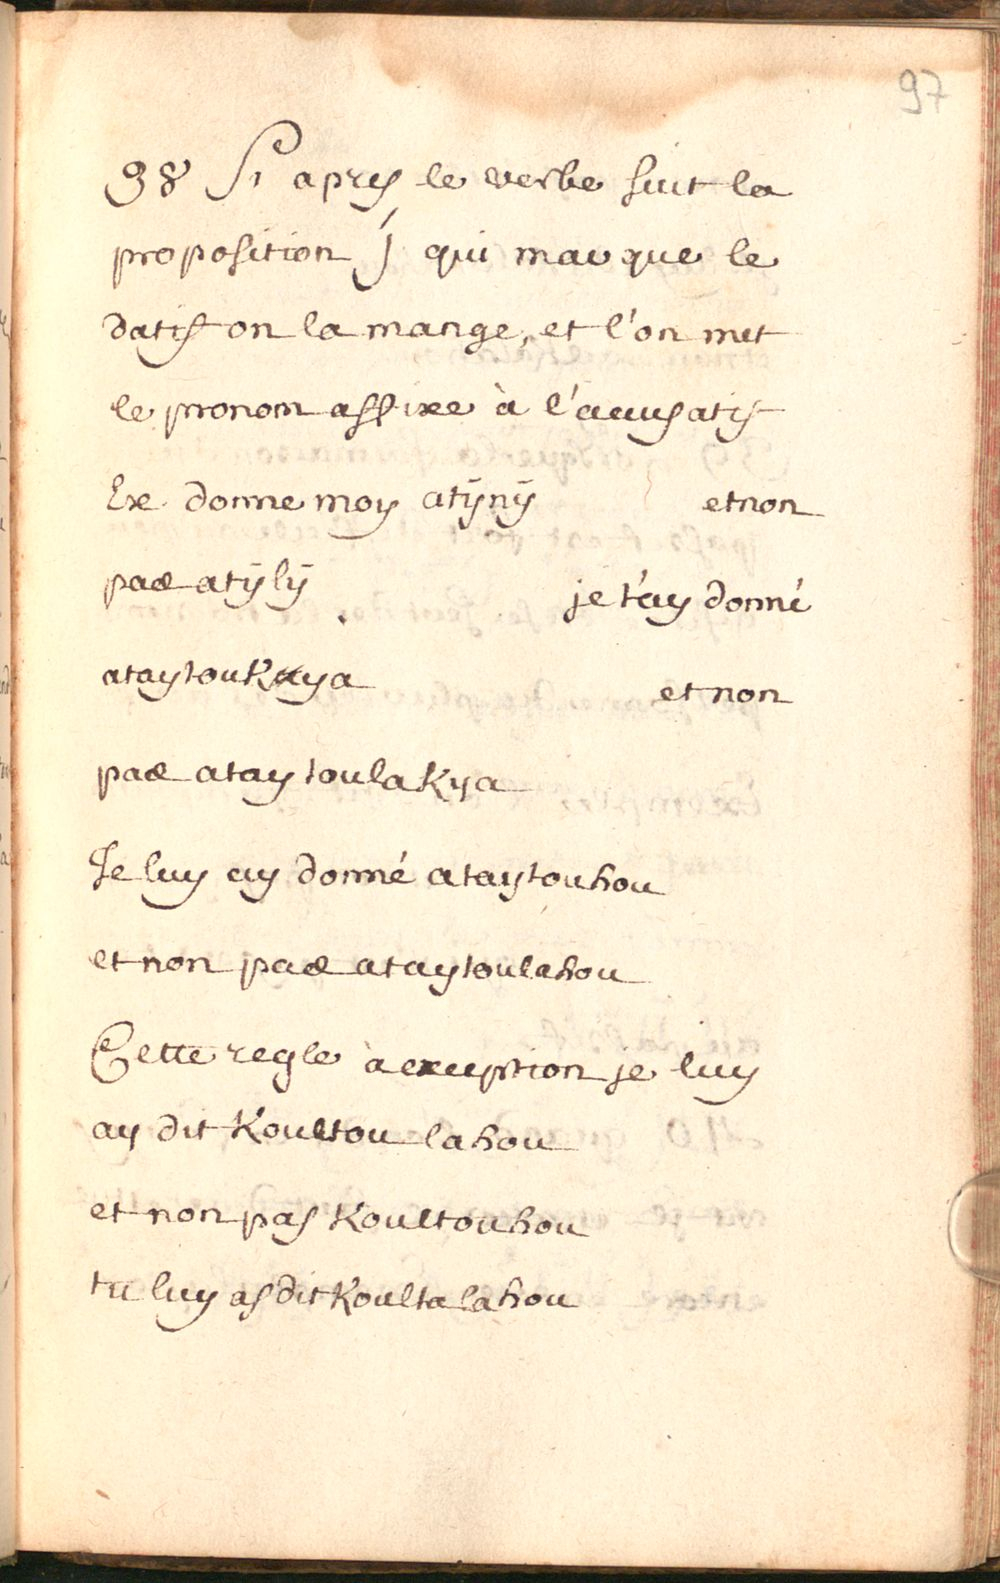 97
38 Si apres le verbe suit la
proposition J qui marque le
datif on la mange, et l'on met
le pronom affixe à l'acusatif
Exe donne moy atÿnÿ et non
pas atÿlÿ je t'ay donné
ataytoukaya et non
pas ataytoulakya
Je luy ay donné ataytouhou
et non pas ataytoulahou
Cette regle à exception je luy
ay dit Koultou lahou
et non pas Koultouhou
tu luy as dit Koultalahou